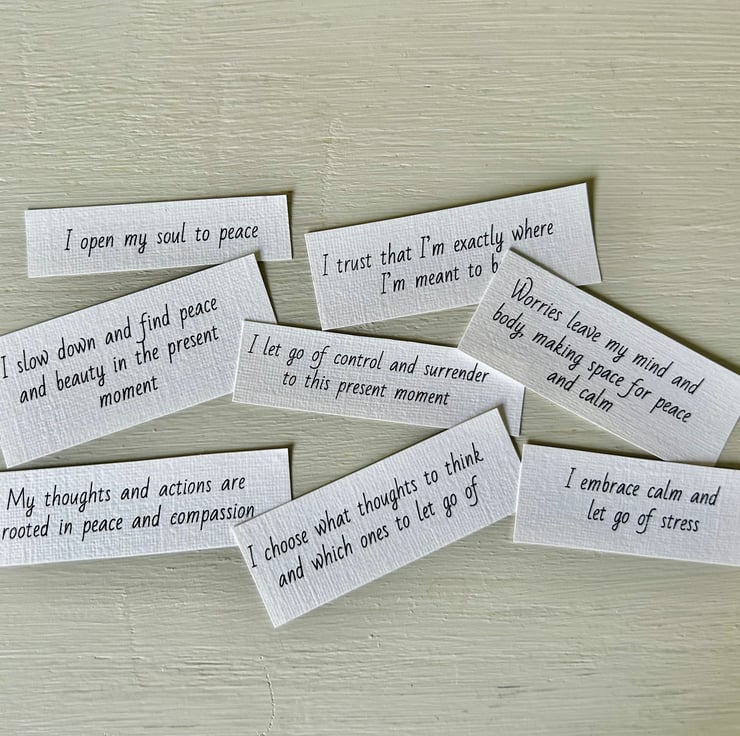 I open my soul to peace
I trust that I'm exactly where
I'm meant to
I slow down and find peace
and beauty in the present
moment
I let go of control and surrender
to this present moment
Worries leave my mind and
body, making space for peace
and calm
My thoughts and actions are
rooted in peace and compassion
I choose what thoughts to think
and which ones to let go of
I embrace calm and
let go of stress